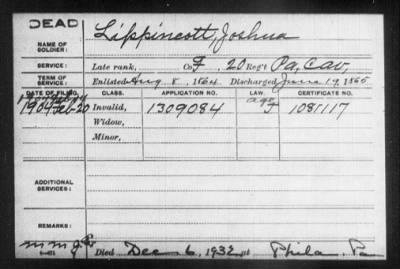 DEAD
NAME OF SOLDIER: Lippincott, Joshua
SERVICE: Late rank, Co. F, 20 Reg't Pa. Cav.
TERM OF SERVICE: Enlisted Aug 8, 1864 Discharged June 19, 1865
DATE OF FILING. CLASS. APPLICATION NO. LAW. CERTIFICATE NO.
1904 Feb 20 Invalid, 1309084 age 1081117
Widow,
Minor,
ADDITIONAL SERVICES:
REMARKS:
Died Dec 6, 1932 at Phila. Pa